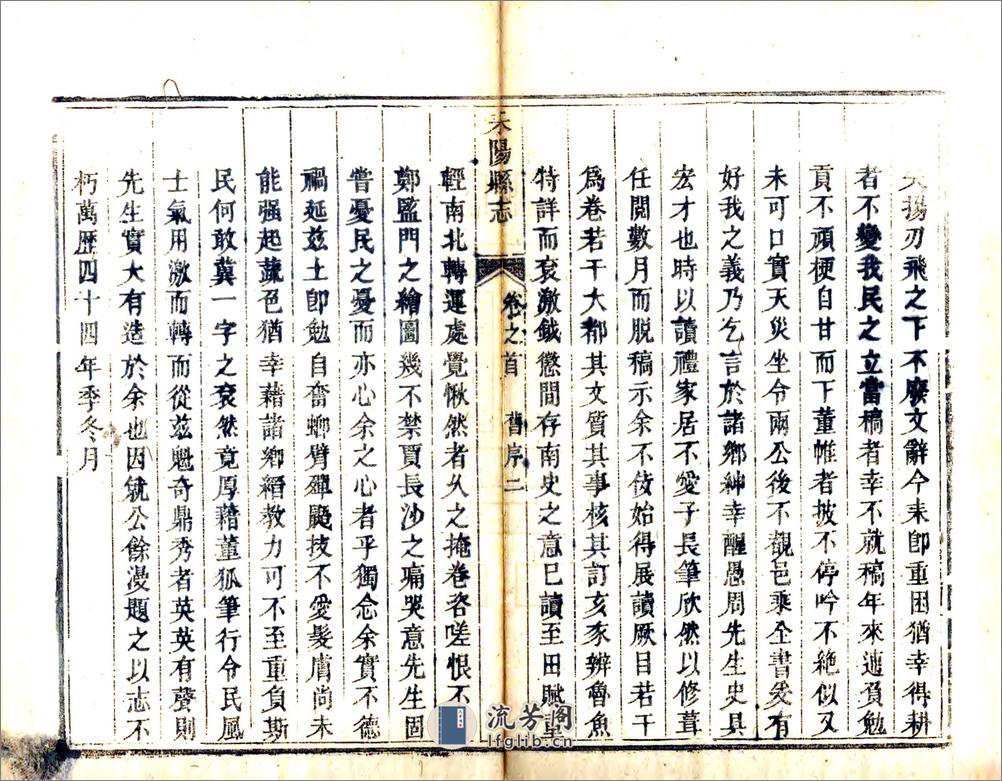 揚刃飛之下不廢文辭今耒卽重困猶幸得耕
者不變我民之立當稿者幸不就稿年來逋負勉
貢不頑梗自甘而下董帷者披不停吟不絶似又
未可口實天災坐令兩公後不觀邑乘全書爰有
好我之義乃乞言於諸鄉紳幸醒愚周先生史具
宏才也時以讀禮家居不愛子長筆欣然以修葺
任閱數月而脫稿示余不佞始得展讀厥目若干
爲卷若干大都其文質其事核其訂亥豕辨魯魚
特詳而袞激鉞懲間存南史之意已讀至田賦
耒陽縣志 卷之首 舊序二
輕南北轉運處覺愀然者久之掩卷咨嗟恨不
鄭監門之繪圖幾不禁賈長沙之痛哭意先生固
嘗憂民之憂而亦心余之心者乎獨念余實不德
禍延茲土卽勉自奮螂臂殫鼯技不愛髮膚尚未
能强起蔬色猶幸藉諸鄉縉教力可不至重負斯
民何敢冀一字之袞然竟厚藉董狐筆行令民風
士氣用激而轉而從茲魁奇鼎秀者英英有聲則
先生實大有造於余也因就公餘漫題之以志不
朽萬歷四十四年季冬月
流芳閣
lfglib.cn